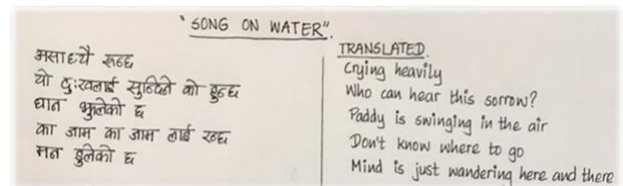 "SONG ON WATER".
असाध्यै रून्छ
यो दुःखलाई सुनिदिने को हुन्छ
धान झुलेको छ
का जाम का जाम लाई रन्छ
मन डुलेको छ
TRANSLATED.
Crying heavily
Who can hear this sorrow?
Paddy is swinging in the air
Don't know where to go
Mind is just wandering here and there